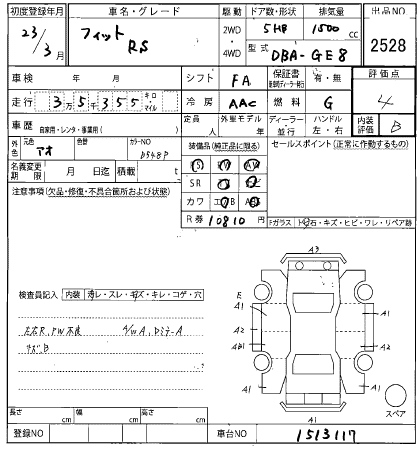 初度登録年月 車名・グレード 駆動 ドア数・形状 排気量 出品NO
23/3月 フィット RS 2WD・4WD 5HB 1500cc 2528
型式 DBA-GE8
車検 年 月 シフト FA 保証書 有・無 評価点
走行 3万5千355 キロ・マイル 冷房 AAC 燃料 G 4
車歴 自家用・レンタ・事業用( ) 定員 人 外車モデル 年 ディーラー・並行 ハンドル 左・右 内装評価 B
外色 元色 アオ 色替 カラーNO B548P
装備品(純正品に限る) セールスポイント(正常に作動するもの)
名義変更期限 月 日迄 積載 t
PS PW AW
SR
カワ エアB
R券 10810円
注意事項(欠品・修復・不具合箇所および状態)
Fガラス トビ石・キズ・ヒビ・ワレ・リペア跡
A3
検査員記入 内装・汚レ・スレ・キズ・キレ・コゲ・穴
E
A1
A1
A2
A2
A1
A1
A1
A1
スペア
A1
長さ cm 幅 cm 高さ cm
登録NO 車台NO 1513117